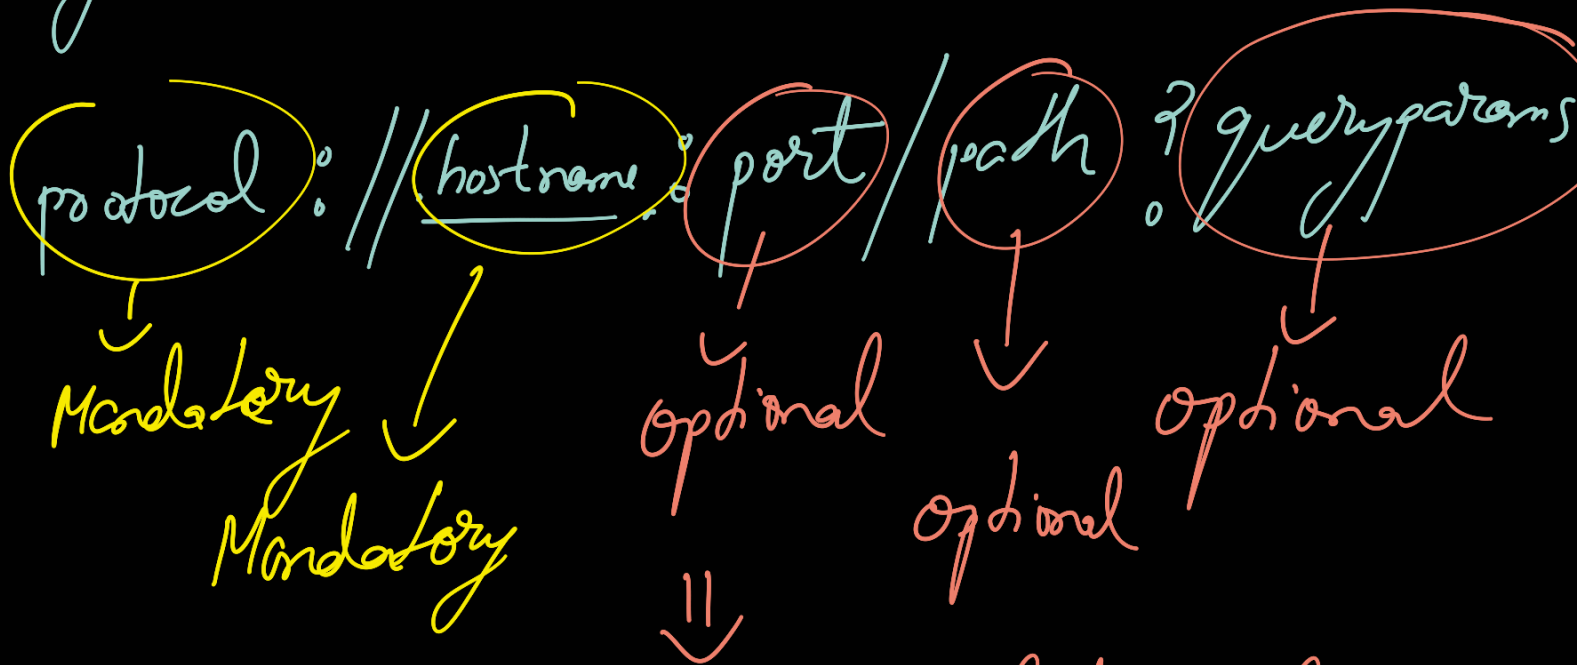 protocol://hostname:port/path?queryparams
Mandatory
Mandatory
optional
optional
optional